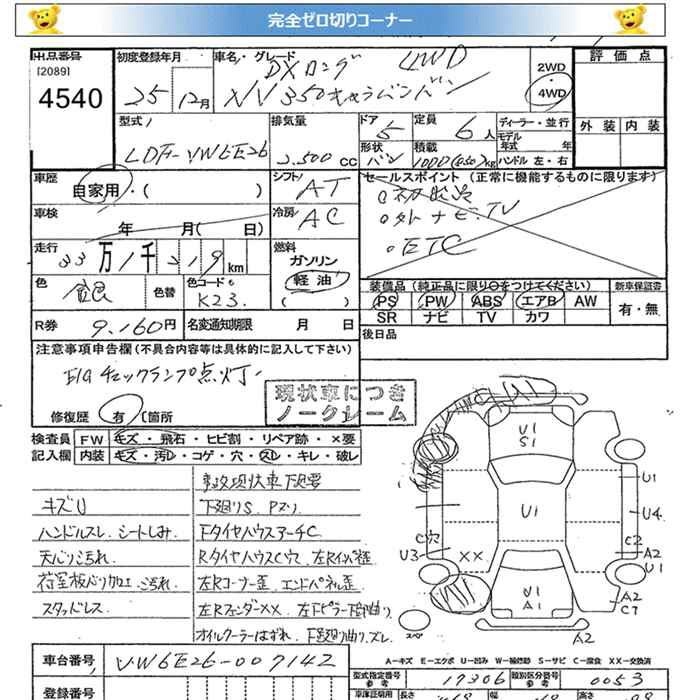 完全ゼロ切りコーナー
出品番号
[2089]
4540
初度登録年月
25 12月
車名・グレード
DXロング 4WD
NV350キャラバンバン
2WD
4WD
評価点
外装 内装
型式
LDF-VW6E26
排気量
2,500 cc
ドア
5
形状
バン
定員
6人
積載
kg
ディーラー・並行
モデル
年式 年
ハンドル 左・右
車歴
自家用・( )
シフト
AT
セールスポイント (正常に機能するものに限ります)
ナビ.TV
ETC
車検
年 月( 日)
冷房
AC
走行
33万1千219km
燃料
ガソリン
軽油
( )
色
銀
色替
色コード
K23
装備品 (純正品に限り○をつけてください)
PS PW ABS エアB AW
SR ナビ TV カワ
新車保証書
有・無
R券
9,160円
名変通知期限 月 日
後日品
注意事項申告欄 (不具合内容等は具体的に記入して下さい)
チェックランプ点灯
現状車につき
ノークレーム
修復歴 有 [箇所
検査員
記入欄
FW キズ・飛石・ヒビ割・リペア跡・×要
内装 キズ・汚レ・コゲ・穴・スレ・キレ・破レ
事故現状車 下廻要
キズU
下廻りS、Pズリ
ハンドルスレ、シートしみ
FタイヤハウスアーチC
天バリ汚れ
RタイヤハウスC穴
荷室板バリ加工、汚れ
左Rコーナー歪、エンドパネル歪
スタッドレス
左RフェンダーXX
オイルクーラーはずれ
U1
S1
U1
U1
A1
U1
U4
C2
A2
U1
A2
C7
A2
C穴
U3
XX
スペア
A-キズ E-エクボ U-凹み W-補修跡 S-サビ C-腐食 XX-交換済
車台番号
VW6E26-007142
型式指定番号
参考
17306
類別区分番号
参考
0053
登録番号
車庫証明用
長さ
幅
高さ